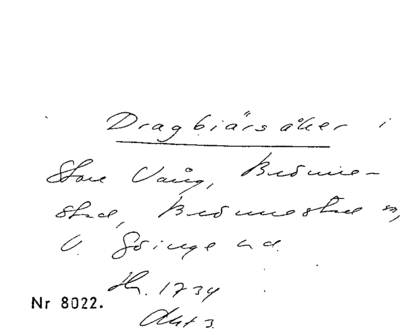 Dragbiärsåker i
Store Vång, Brönne-
stad, Brönnestad sn,
V. Göinge hd.
Hr. 1734
Akt 3
Nr 8022.